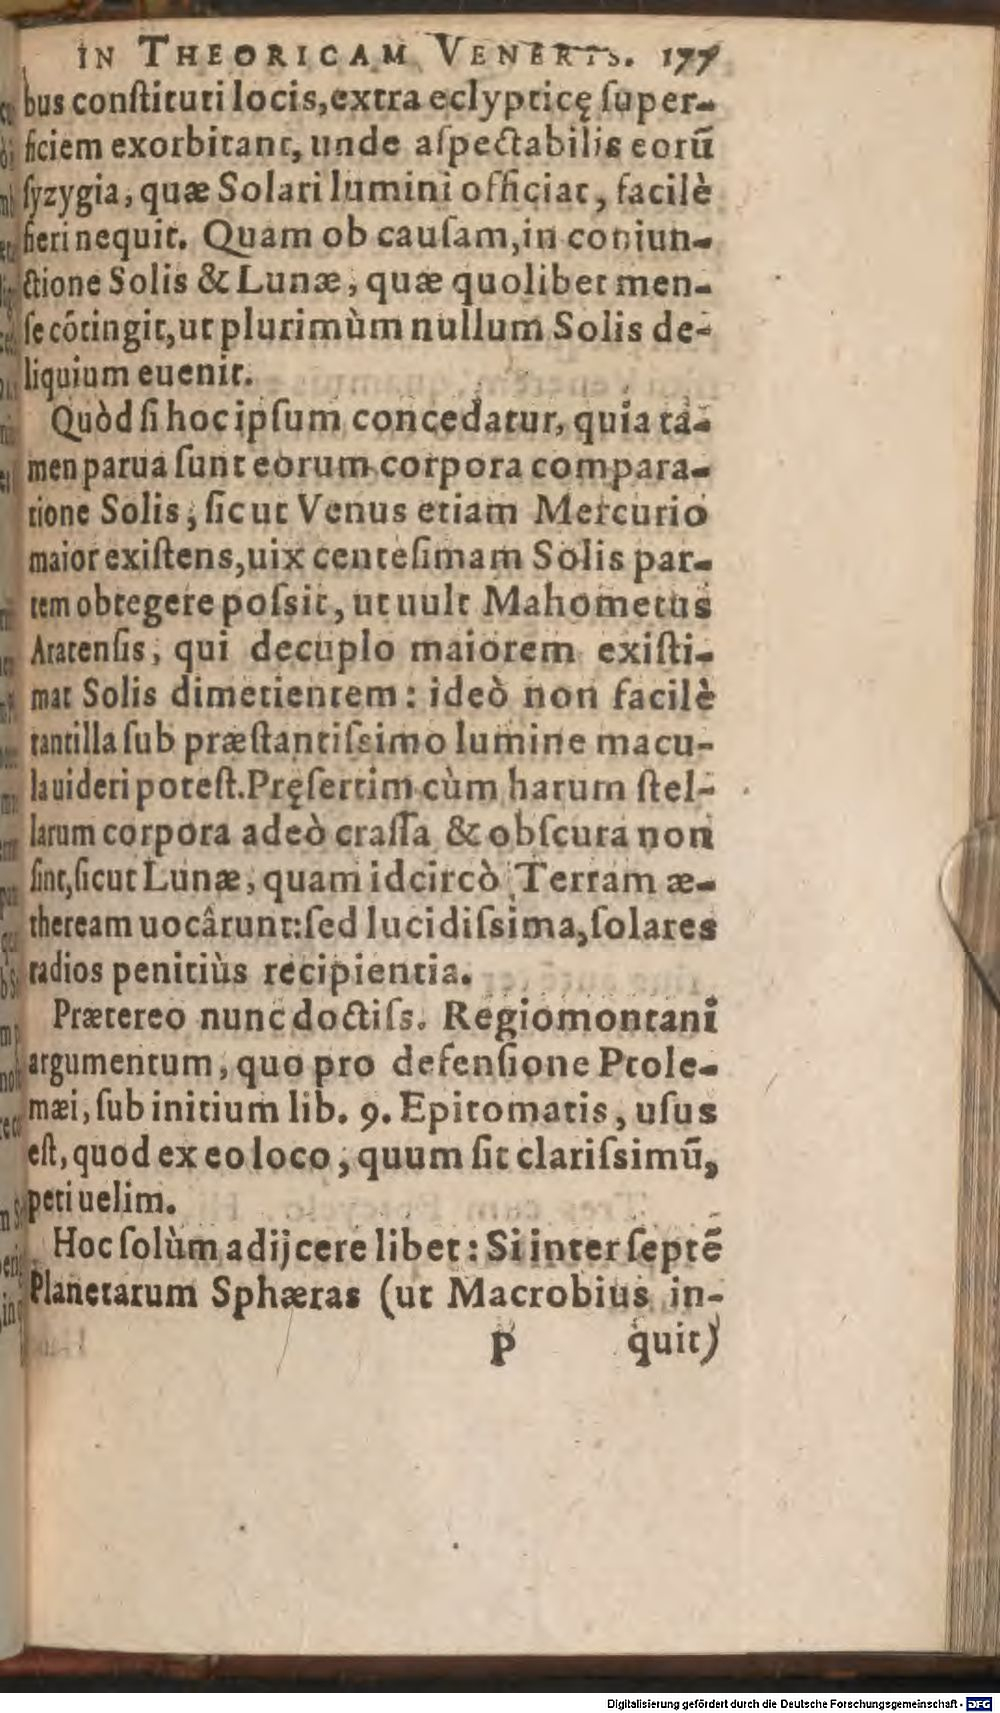 IN THEORICAM VENERIS. 177
bus conſtituti locis,extra eclypticę ſuper-
ficiem exorbitant, unde aſpectabilis eorū
ſyzygia, quæ Solari lumini officiat, facilè
fieri nequit. Quam ob cauſam,in coniun-
ctione Solis & Lunæ, quæ quolibet men-
ſe cōtingit,ut plurimùm nullum Solis de-
liquium euenit.
Quòd ſi hoc ipſum concedatur, quia ta-
men parua ſunt eorum corpora compara-
tione Solis, ſicut Venus etiam Mercurio
maior exiſtens,uix centeſimam Solis par-
tem obtegere poſsit, ut uult Mahometus
Aratenſis, qui decuplo maiorem exiſti-
mat Solis dimetientem: ideò non facilè
tantilla ſub præſtantiſsimo lumine macu-
la uideri poteſt.Pręſertim cùm harum ſtel-
larum corpora adeò craſſa & obſcura non
ſint,ſicut Lunæ, quam idcircò Terram æ-
theream uocârunt:ſed lucidiſsima,ſolares
radios penitiùs recipientia.
Prætereo nunc doctiſs. Regiomontani
argumentum, quo pro defenſione Ptole-
mæi, ſub initium lib. 9. Epitomatis, uſus
eſt, quod ex eo loco, quum ſit clariſsimū,
peti uelim.
Hoc ſolùm adijcere libet: Si inter ſeptē
Planetarum Sphæras (ut Macrobius in-
p quit)
Digitalisierung gefördert durch die Deutsche Forschungsgemeinschaft - DFG